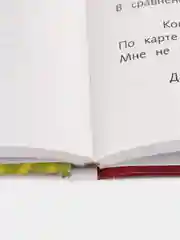 в сравнен
Ко
По карте
Мне не
Д